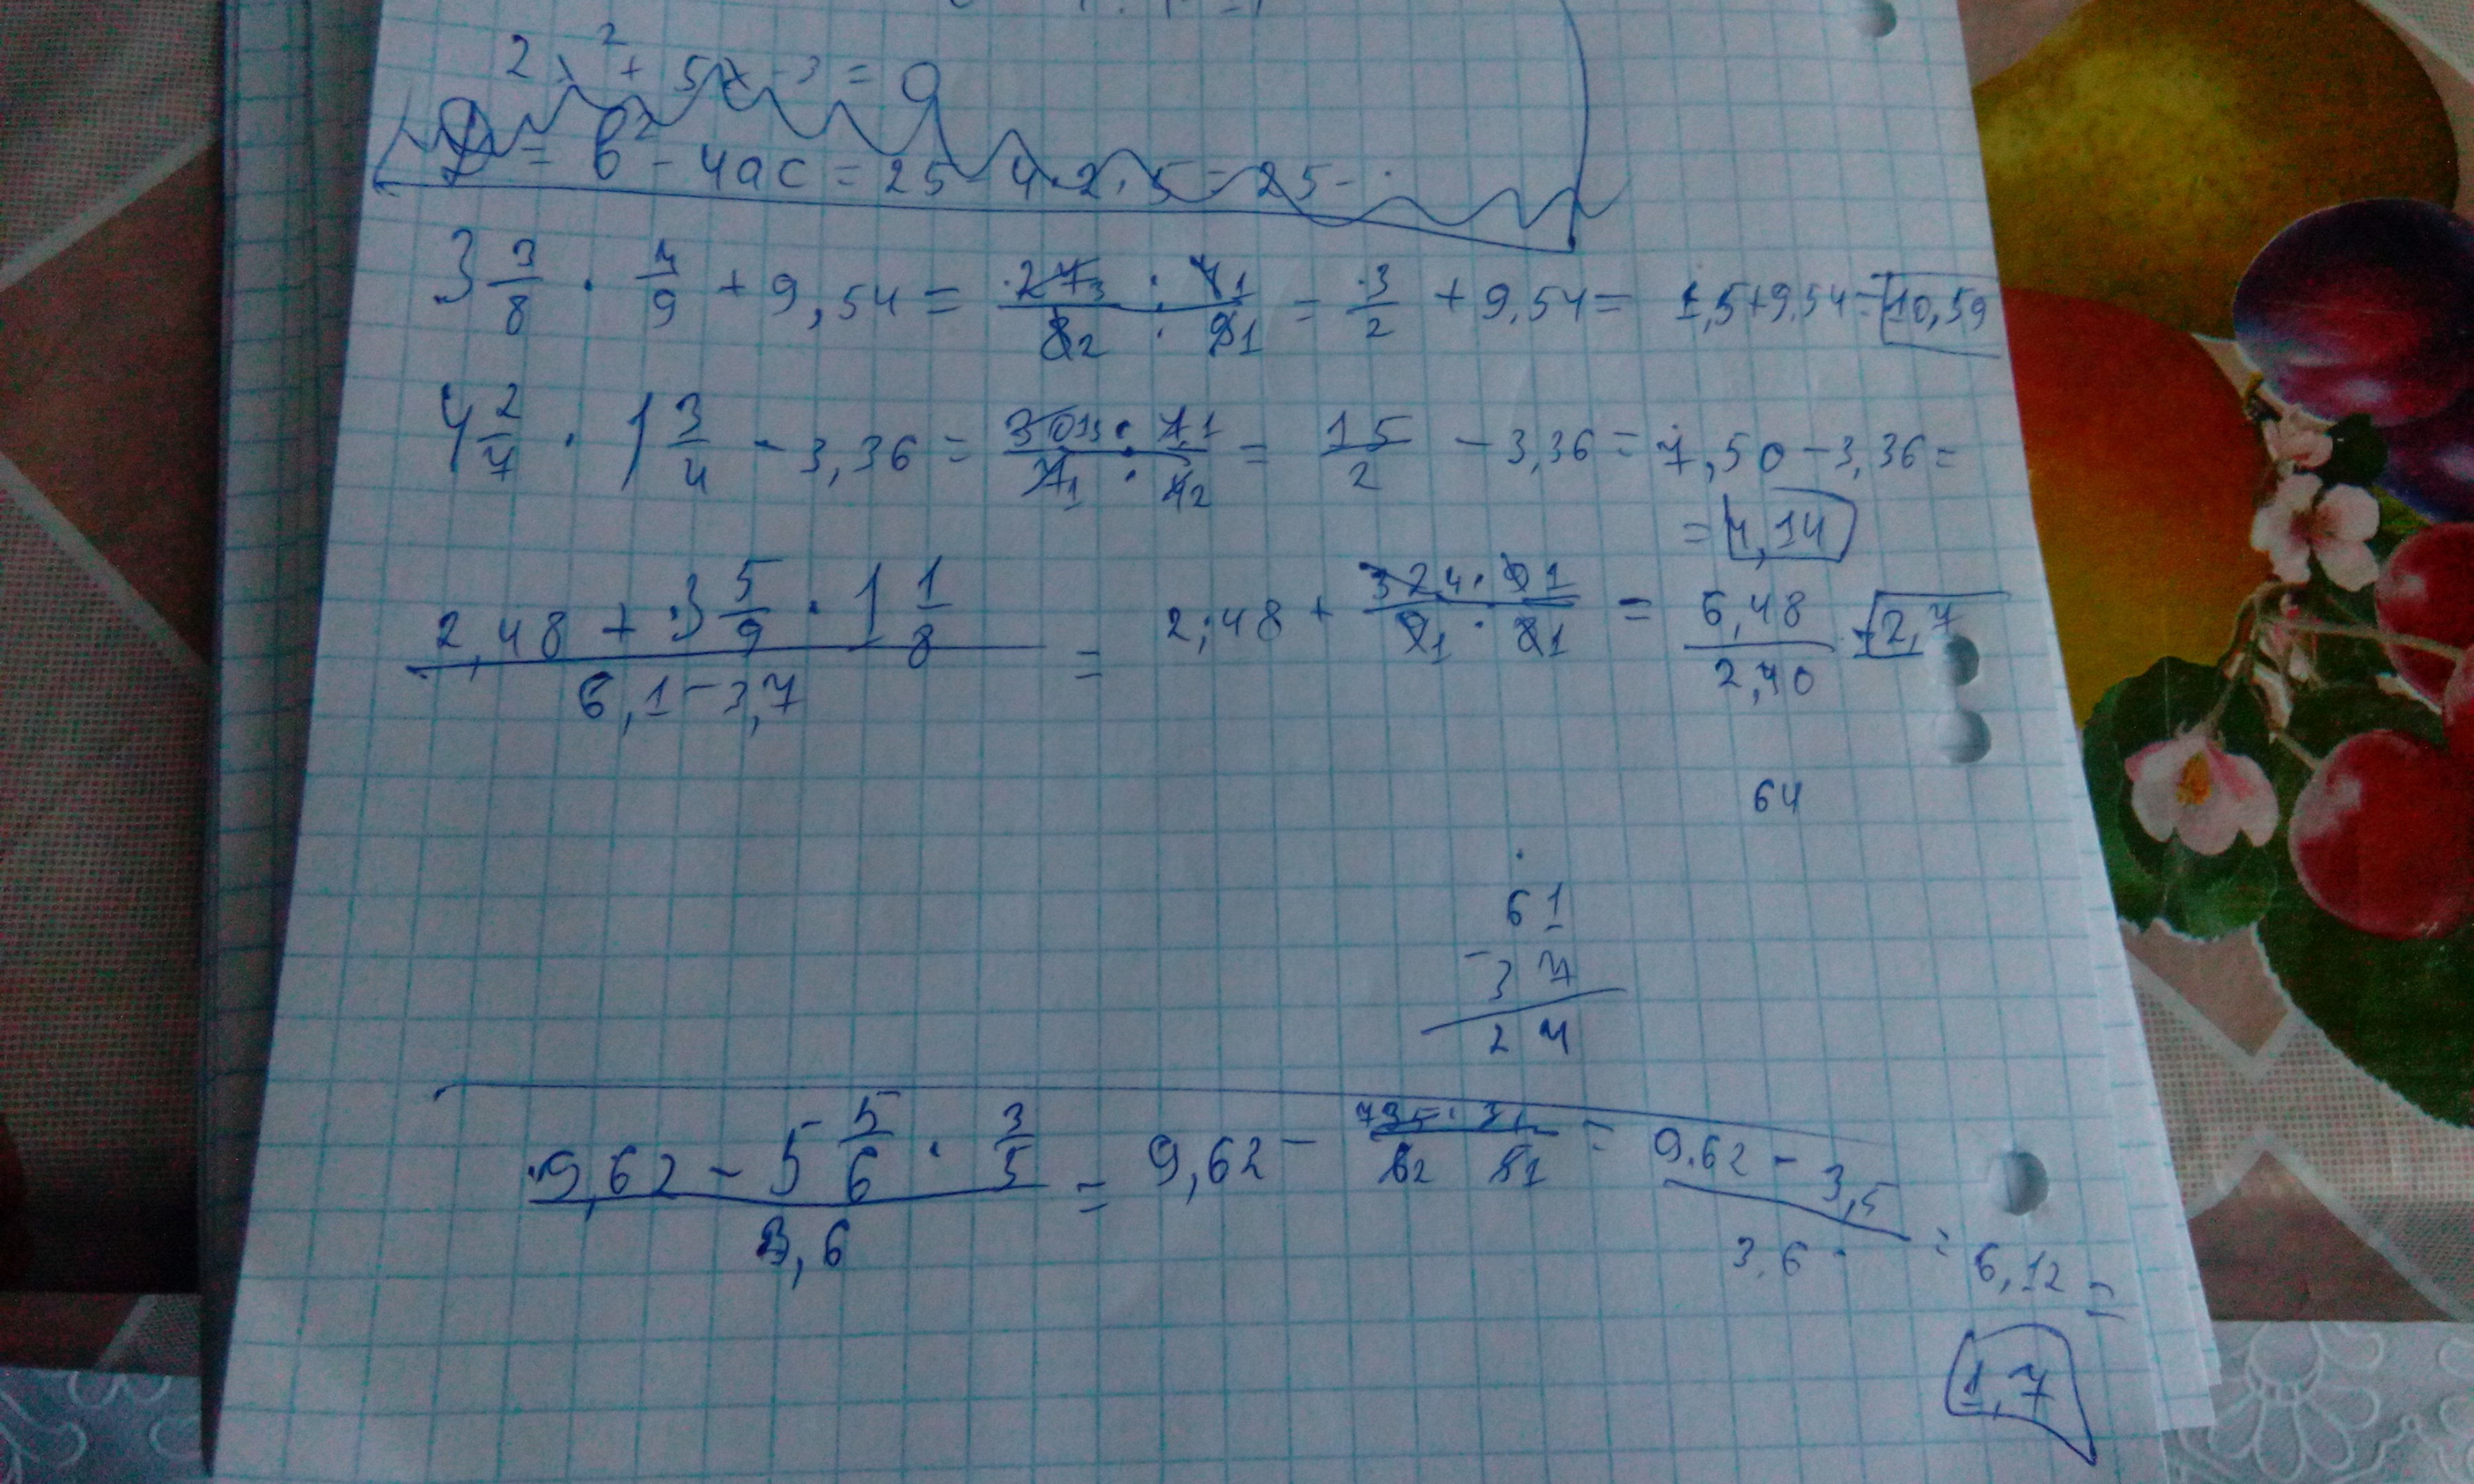 2x² + 5x - 3 = 0
D = b² - 4ac = 25 - 4·2·5 = 25 -
3 3/8 · 4/9 + 9,54 = 27 3 · 4 1 / 8 2 · 9 1 = 3/2 + 9,54 = 1,5+9,54 = 10,59
4 2/7 · 1 3/4 - 3,36 = 30 15 · 7 1 / 7 1 · 4 2 = 15/2 - 3,36 = 7,50 - 3,36 =
= 4,14
2,48 + 3 5/9 · 1 1/8 / 6,1 - 3,7 = 2,48 + 32 4 · 9 1 / 9 1 · 8 1 = 6,48 / 2,40 = 2,7
64
61
- 37
24
9,62 - 5 5/6 · 3/5 / 3,6 = 9,62 - 7 35 · 3 1 / 6 2 5 1 = 9.62 - 3,5 / 3.6 = 6,12 =
1,7